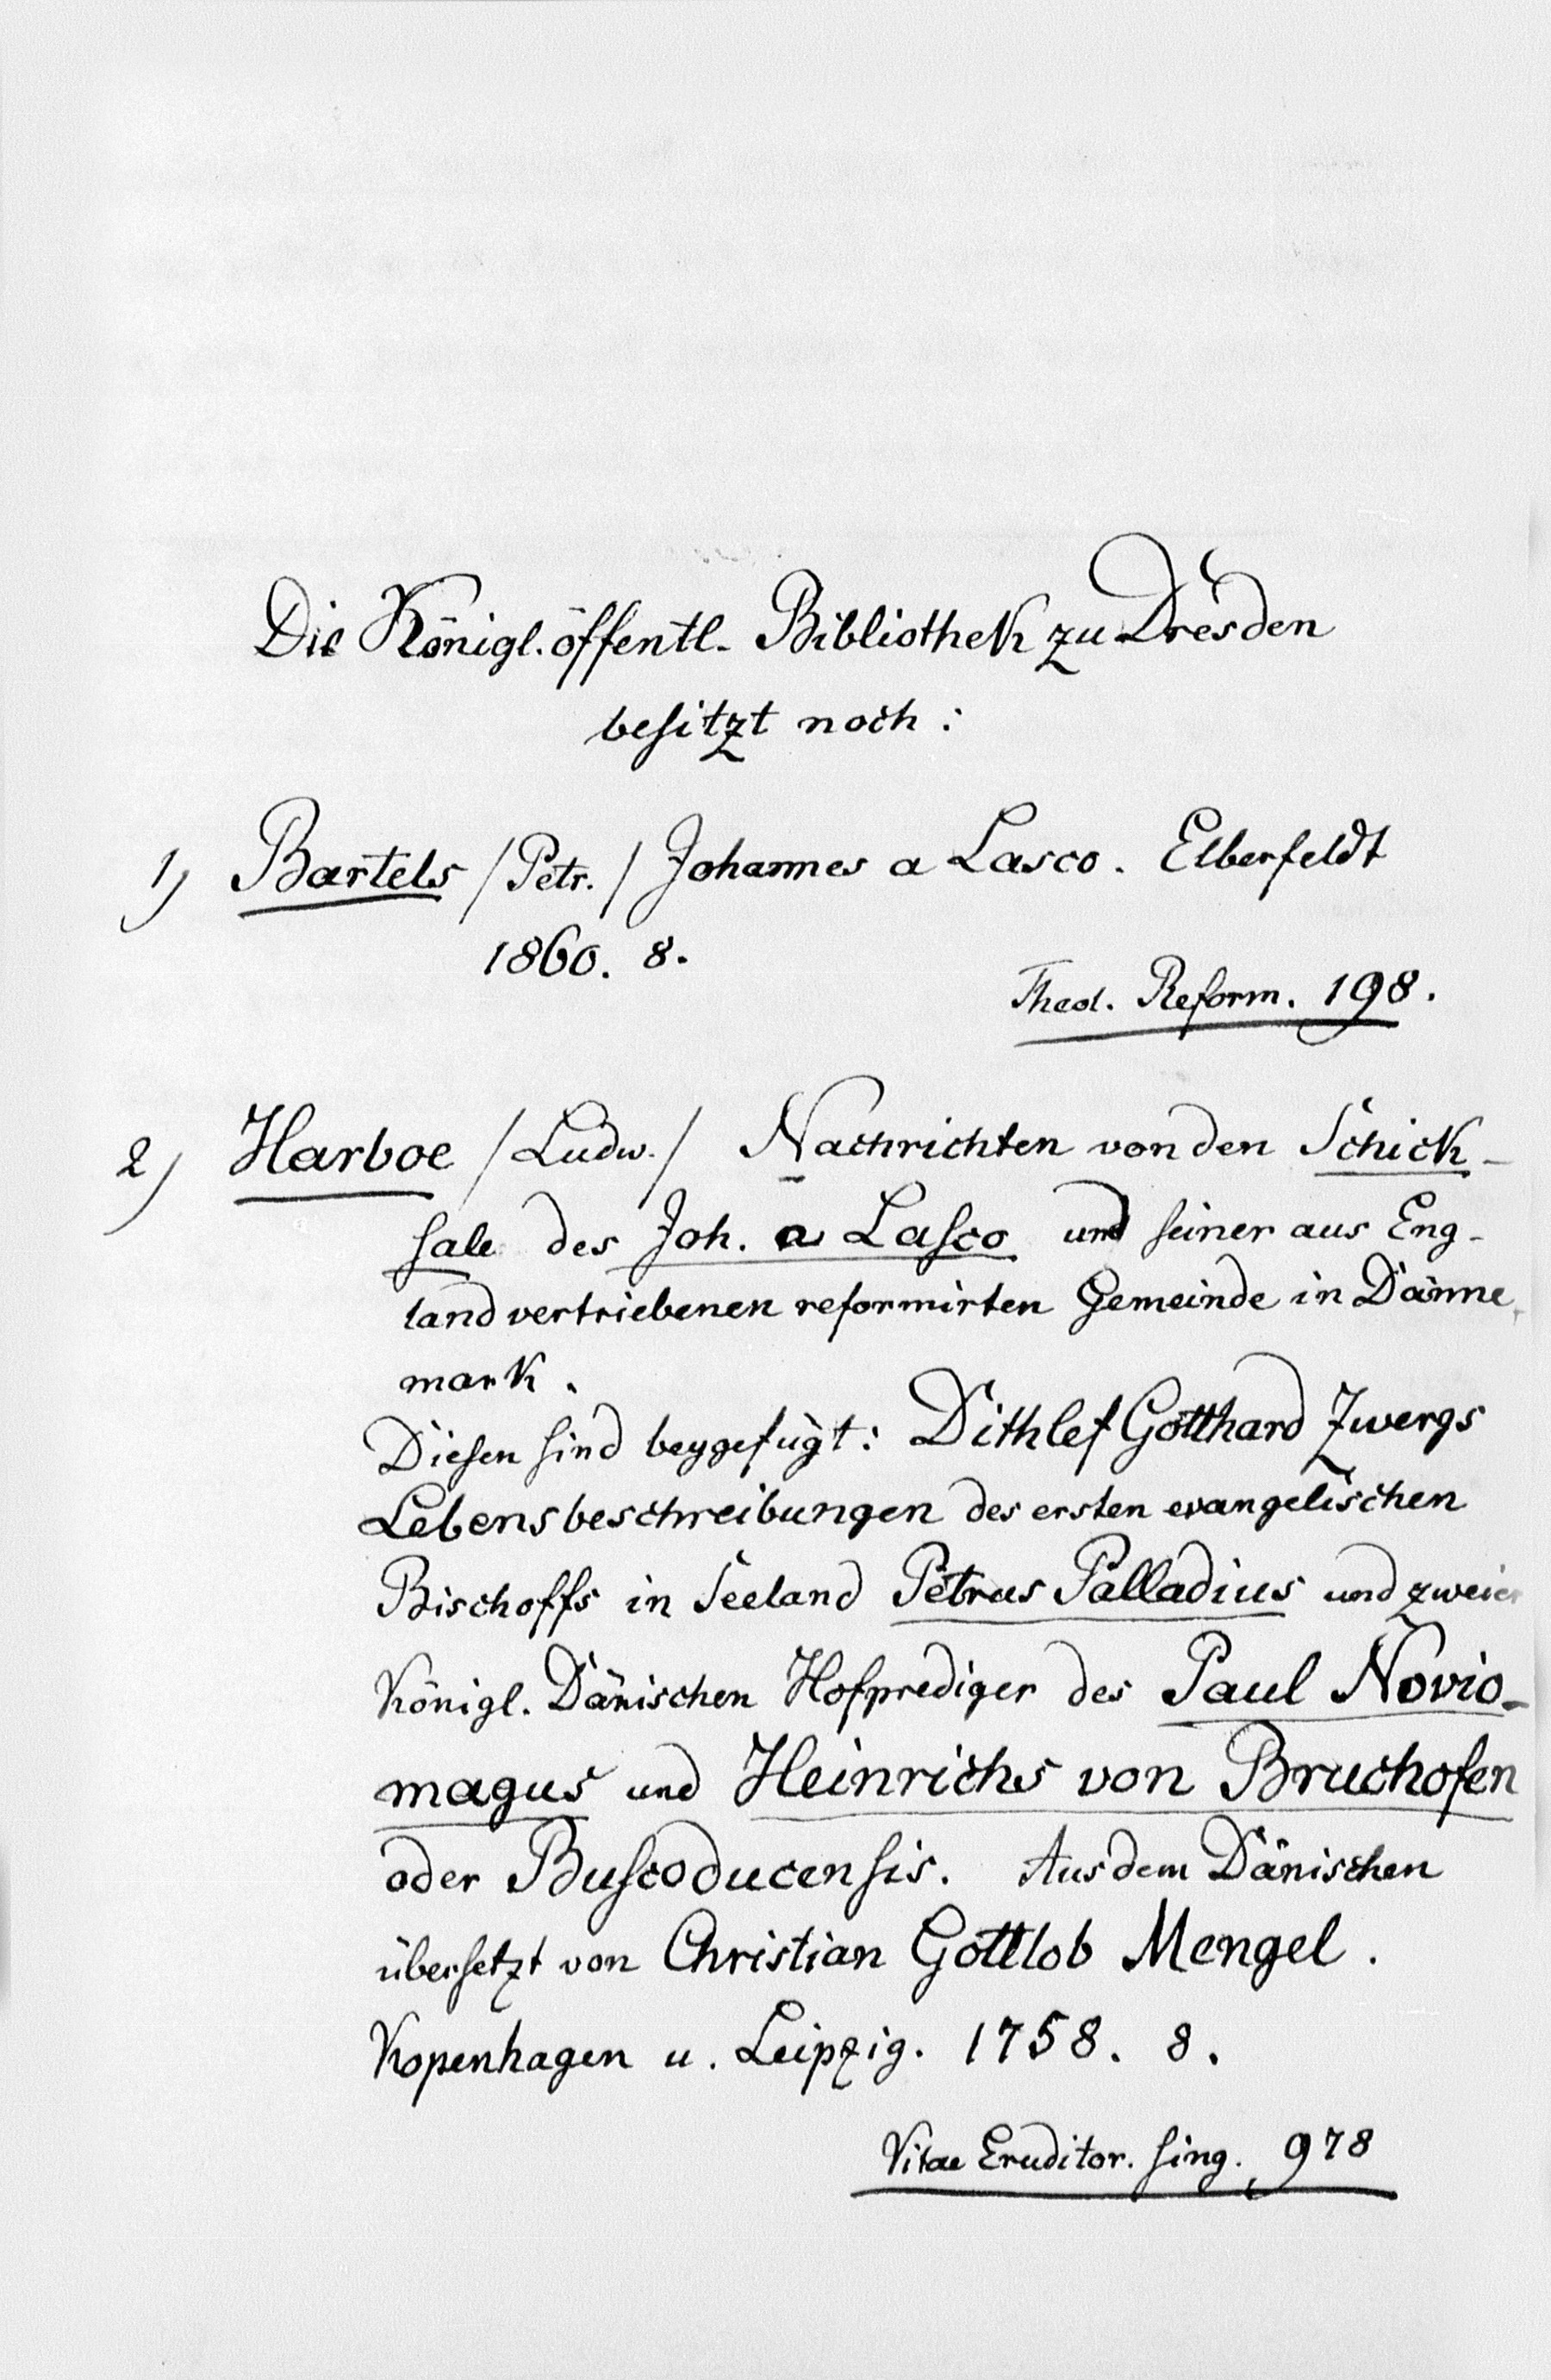 Die Königl. öffentl. Bibliothek zu Dresden
besitzt noch:
1) Bartels /Petr./ Johannes a Lasco. Elberfeldt
1860. 8.
Theol. Reform. 198.
2) Harboe /Ludw./ Nachrichten von den Schick-
sale des Joh. a Lasco und seiner aus Eng-
land vertriebenen reformirten Gemeinde in Dänne-
mark.
Diesen sind beygefügt: Dithlef Gotthard Zwergs
Lebensbeschreibungen des ersten evangelischen
Bischoffs in Seeland Petrus Palladius und zweier
Königl. Dänischen Hofprediger des Paul Novio-
magus und Heinrichs von Bruchofen
oder Buscoducensis. Aus dem Dänischen
übersetzt von Christian Gottlob Mengel.
Kopenhagen u. Leipzig. 1758. 8.
Vitae Eruditor. sing. 978